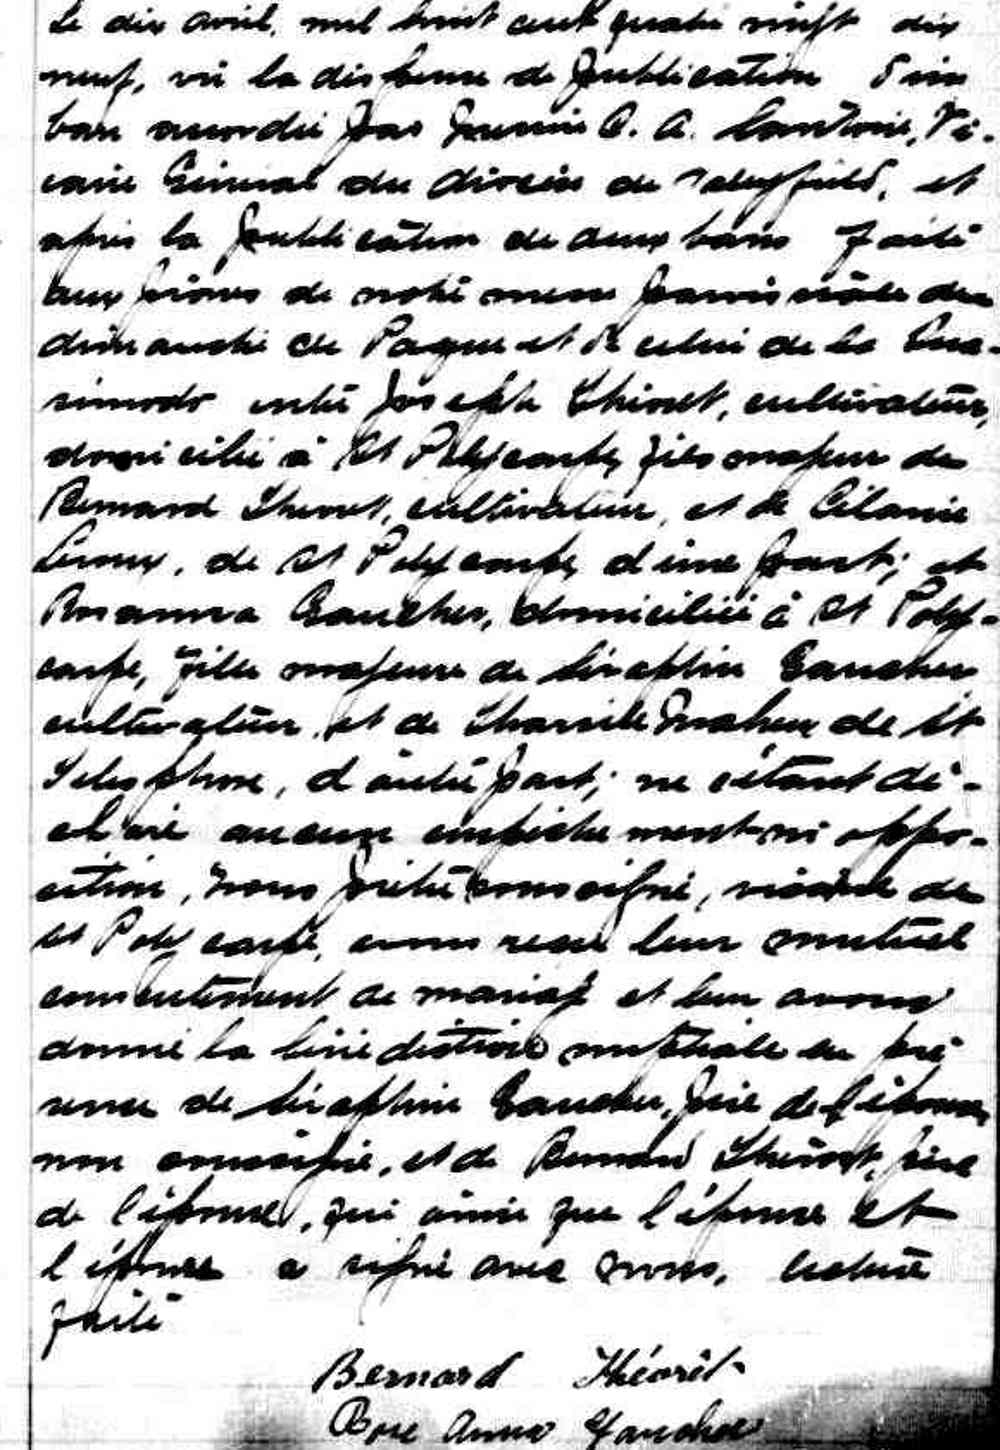 Le dix avril, mil huit cent quatre vingt dix
neuf, vu la dispense de publication d'un
ban accordée par C. A. Vi-
caire Général du diocèse de Valleyfield, et
après la publication de deux bans faite
aux prônes de notre messe paroissiale du
dimanche de Paques et de celui de la Qua-
simodo entre Joseph Théoret, cultivateur,
domicilié à St Polycarpe, fils majeur de
Bernard Théoret, cultivateur, et de Célanie
Leroux, de St Polycarpe, d'une part; et
Rosanna Gaucher, domiciliée à St Poly-
carpe, fille majeure de Séraphin Gaucher
cultivateur, et de Maheu de St
Télesphore, d'autre part; ne s'étant dé-
claré aucun empêchement ni oppo-
sition, nous prêtre soussigné, vicaire de
St Polycarpe, avons reçu leur mutuel
consentement de mariage et leur avons
donné la bénédiction nuptiale en pré
sence de Séraphin Gaucher, père de l'épouse,
non soussigné, et de Bernard Théoret, père
de l'époux, qui ainsi que l'épouse et
l'époux a signé avec nous, lecture
faite
Bernard Théorêt
Rose Anna Gaucher